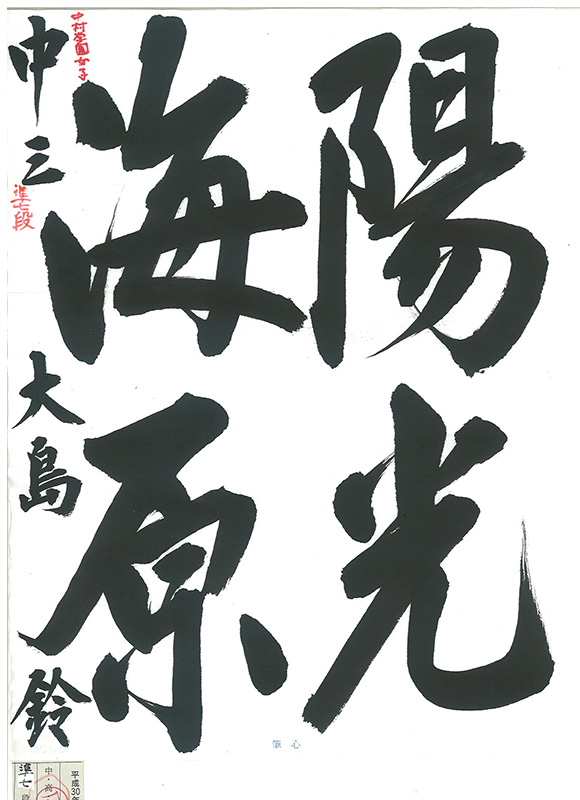 陽光
海原
中村学園女子
中三 大島 鈴
準七段
心筆
平成30年
中・高
準七段